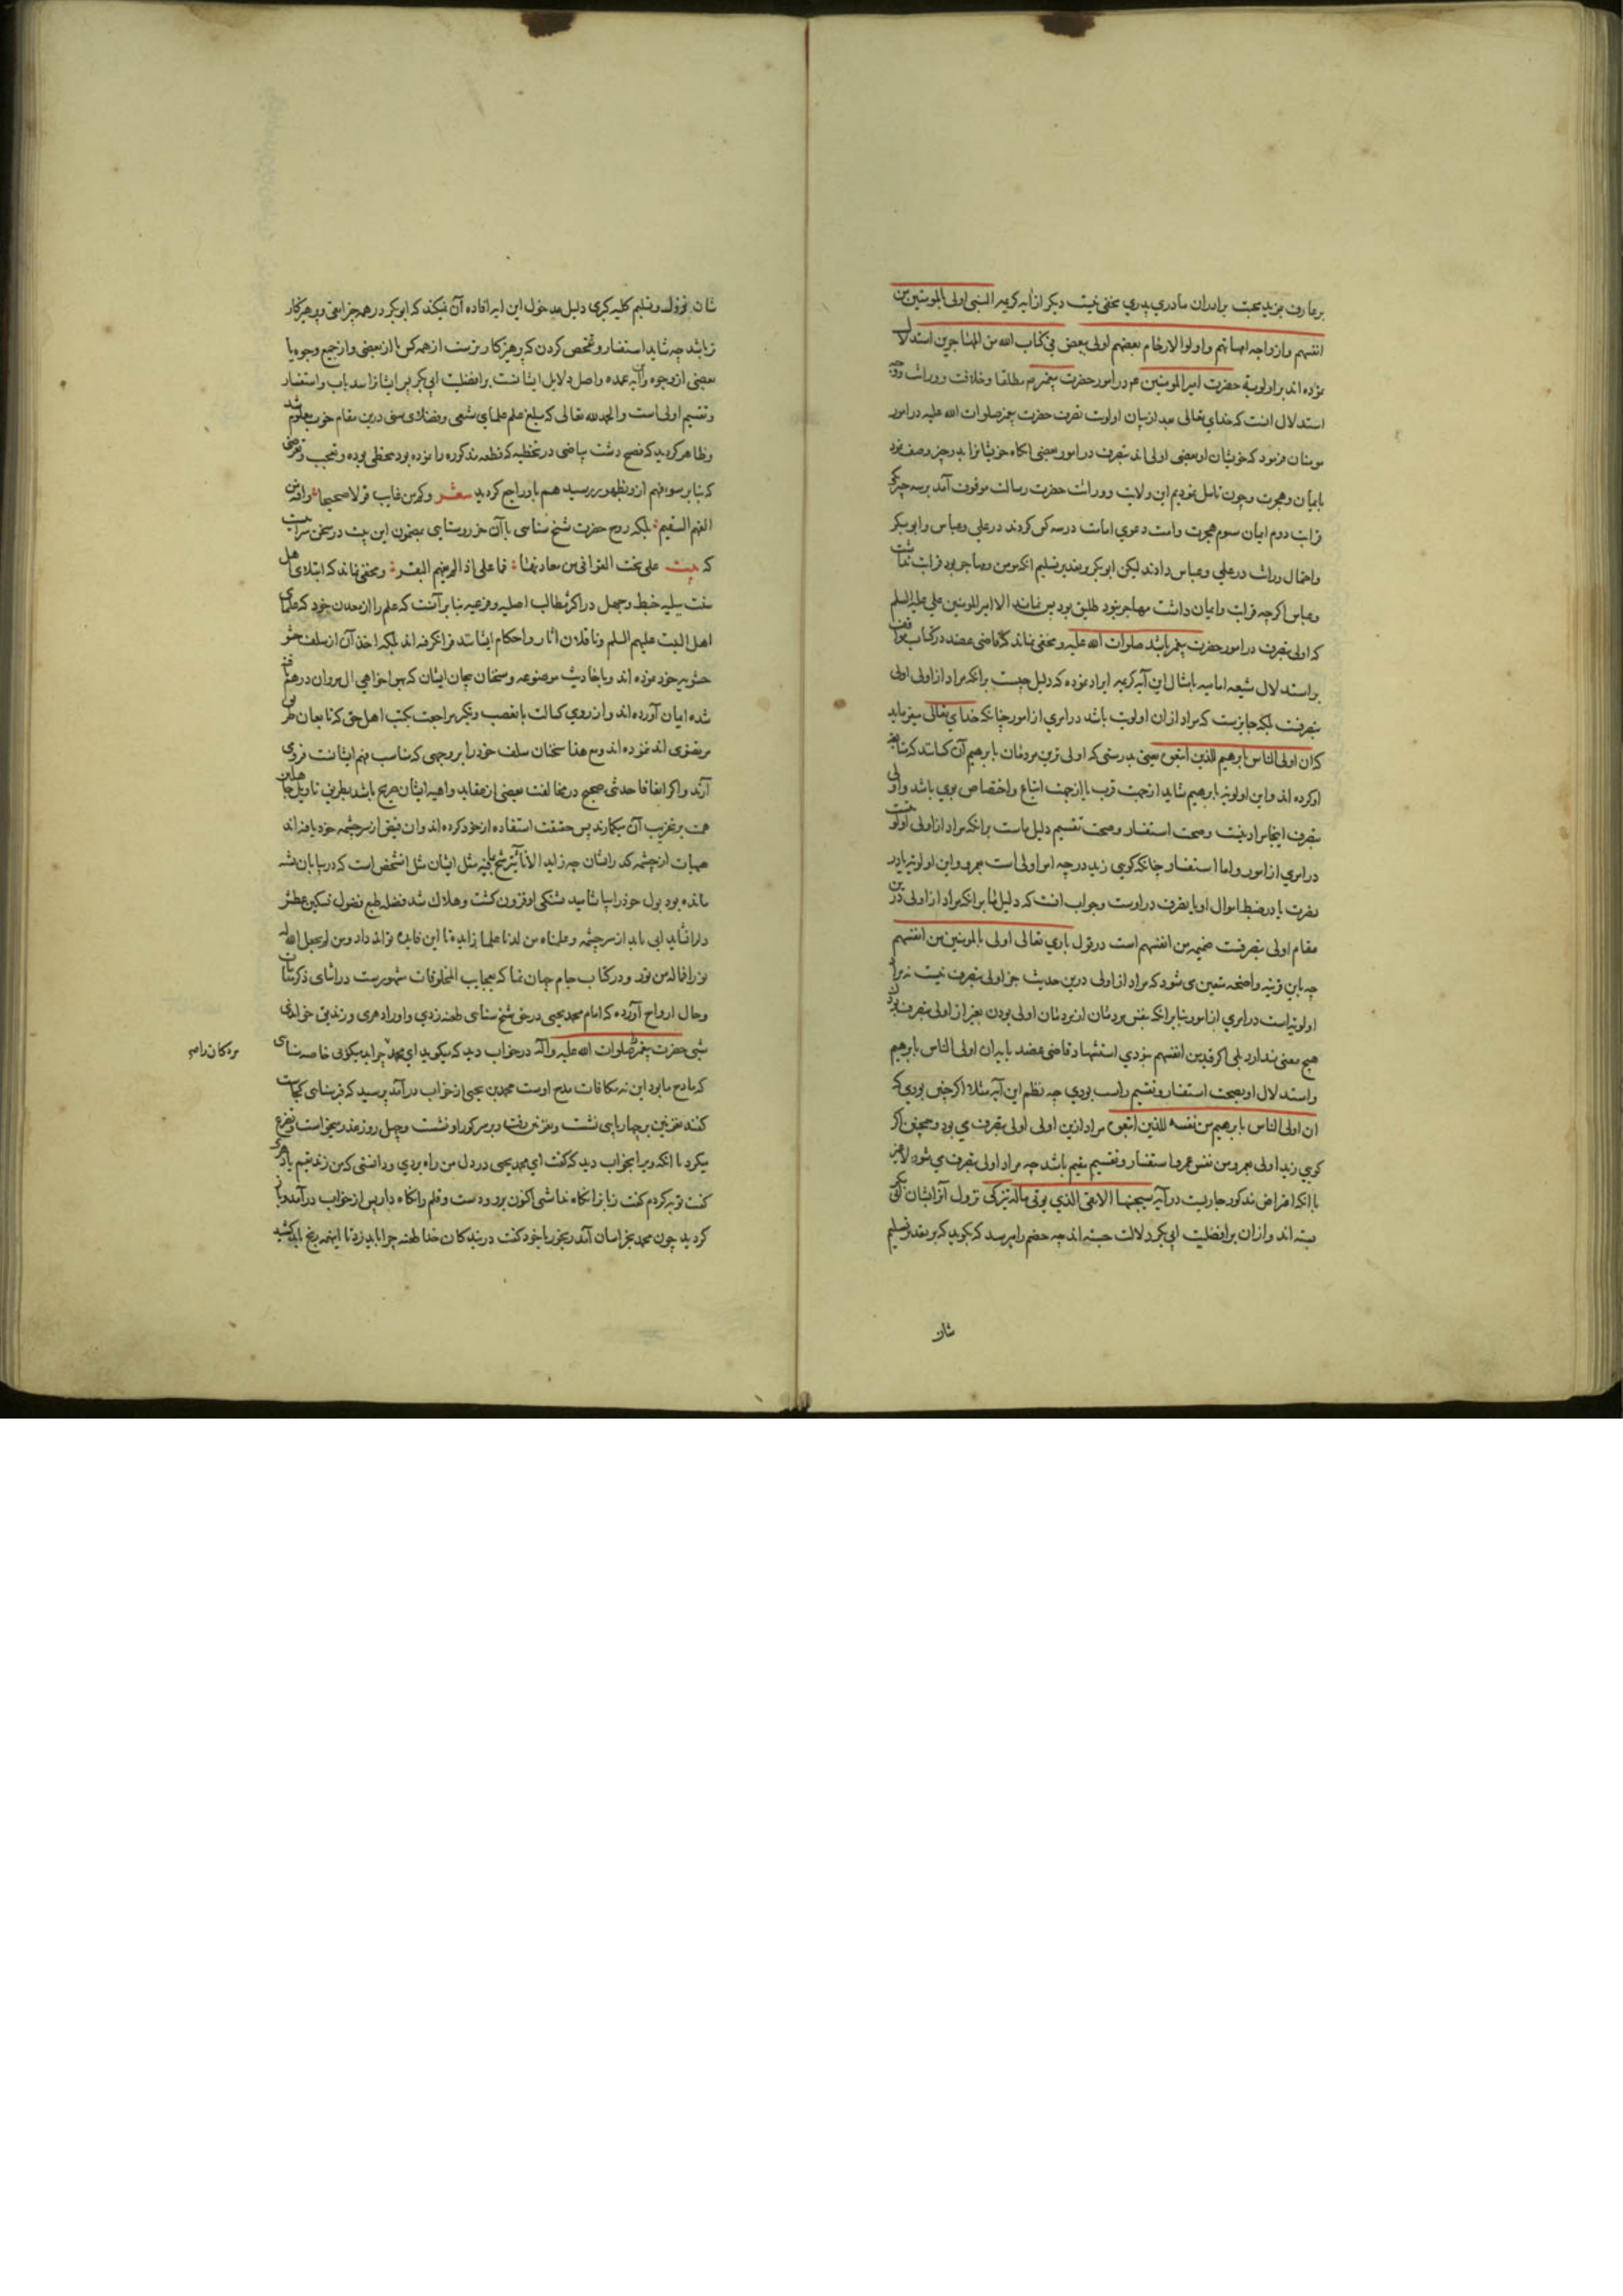 بر عارف مزید محبت برادران مادری پدری مخفی نیست دیکر از آیه کریمه النبی اولی بالمومنین من
انفسهم وازواجه امهاتهم واولوا الارحام بعضهم اولی ببعض فی کتاب الله من المهاجرین استدلال
نموده اند بر اولویة حضرت امیر المومنین عم در امور حضرت پیغمبرم مطلقا وخلافت ووراثت وجه
استدلال انست که خدای تعالی بعد از بیان اولویت تصرف حضرت پیغمبر صلوات الله علیه در امور
مومنان فرمود که خویشان او بعضی اولی اند بتصرف در امور بعضی انکاه خویشانرا بد وچیز وصف نمود
بایمان وهجرت وچون تامل نمودیم این ولایت ووراثت حضرت رسالت موقوف آمد بر سه چیز یکی
قرابت دوم ایمان سوم هجرت وامت دعوی امامت در سه کس کردند در علی وعباس وابو بکر
واحتمال وراثت در علی وعباس دادند لیکن ابو بکر بر تقدیر تسلیم انکه مومن ومهاجر بود قرابت نداشت
وعباس اکرچه قرابت وایمان داشت مهاجر نبود طلیق بود پس نماند الا امیر المومنین علی علیه السلم
که اولی بتصرف در امور حضرت پیغمبر باشد صلوات الله علیه ومخفی نماند که قاضی عضد در کتاب مواقف
بر استدلال شیعه امامیه بامثال این آیه کریمه ایراد نموده که دلیل چیست برانکه مراد از اولی اولی
بتصرفست بلکه جایزست که مراد ازان اولویت باشد در امری از امور چنانکه خدای تعالی میفرماید
که ان اولی الناس بابرهیم للذین اتبعوه یعنی بدرستی که اولی ترین مردمان بابرهیم آن کسانند که متابعت
او کرده اند واین اولویة بابرهیم شاید از جهت قرب یا از جهت اتباع واختصاص بوی باشد واولی
بتصرف اینجا مراد نیست وصحت استفسار وصحت تقسیم دلیل ماست برانکه مراد از اولی اولویت
در امری از امور واما استفسار چنانکه کویی زید در چه امر اولی است بعمرو واین اولویة یا در
نصرت یا در ضبط اموال او یا تصرف در اوست وجواب انست که دلیل ما برانکه مراد از اولی درین
مقام اولی بتصرفست ضمیمه من انفسهم است در قول باری تعالی اولی بالمومنین من انفسهم
چه باین قرینه واضحه متعین می شود که مراد از اولی درین حدیث جز اولی بتصرف نیست نه مراد
اولویة است در امری از امور بنا برانکه بنفس مردمان از مردمان اولی بودن بغیر از اولی بتصرف بودن
هیچ معنی ندارد بلی اکر قید من انفسهم نبودی استشهاد قاضی عضد بایه ان اولی الناس بابرهیم
واستدلال او بصحت استفسار وتقسیم راست بودی چه نظم این آیه مثلا اکر چنین بودی که
ان اولی الناس بابرهیم من نفسه للذین اتبعوه مراد ازین اولی اولی بتصرف می بود وهمچنین اکر
کویی زید اولی بعمرو من نفس عمرو استفسار وتقسیم سقیم باشد چه مراد اولی بتصرف می شود لا غیر
با انکه اعتراض مذکور جاریست در آیه سیجنبها الاتقی الذی یوتی ماله یتزکی که نزول آنرا در شان ابی بکر
بسته اند وازان بر افضلیت ابی بکر دلالت جسته اند چه خصم را میرسد که بکوید که بر تقدیر تسلیم
شان
شان نزول وتسلیم کلیه کبری دلیل مدخول این ایه افاده آن نمیکند که ابو بکر در همه چیز اتقی وپرهیزکار
تر باشد چه شاید استفسار وتفحص کردن که پرهیزکار ترست از همه کس یا از بعضی واز جمیع وجوه یا
بعضی از وجوه وآن آیه عمده واصل دلایل ایشانست بر افضلیت ابی بکر پس ایشانرا سد باب استفسار
وتقسیم اولی است والحمد لله تعالی که مبلغ علم علمای شیعی وفضلای سنی درین مقام خوب معلوم شد
وظاهر کردید که فصیح دشت بیاضی در تخطئه که قطعه مذکوره را نموده بود مخطی بوده وتعجب وتعرضی
که بنا بر سوء فهم ازو بظهور رسید هم باو راجع کردید شعر وکم من عایب قولا صحیحا وافته من
الفهم السقیم بلکه روح حضرت شیخ سنایی با آن خر روستایی بمضمون این بیت در سخن سراییست
که بیت علی نحت القوافی من معادنها فما علی اذا لم یفهم البقر ومخفی نماند که ابتلای اهل
سنت ببلیه خبط وجهل در اکثر مطالب اصلیه وفرعیه بنا بر آنست که علم را از معدن خود که علمای
اهل البیت علیهم السلم وناقلان اثار واحکام ایشانند فرا نکرفته اند بلکه اخذ آن از سلف حشو
حشویه خود نموده اند وباحادیث موضوعه وسخنان بیجان ایشان که بهوا خواهی ال مروان در هم بافته
شده ایمان آورده اند واز روی کسالت یا تعصب دیکر مراجعت بکتب اهل حق که تابعان طریق
مرتضوی اند ننموده اند ومع هذا سخنان سلف خود را بر وجهی که مناسب فهم ایشانست فرو می
آرند واکر اتفاقا حدیثی صحیح در مخالفت بعضی از عقاید واهیه ایشان صریح باشد بطریق تاویل جاهلان
همت بر تخریب آن میکمارند پس حقیقت استفاده از خود کرده اند وان فیض از سرچشمه خود یافته اند
هیهات از چشمه کدر ایشان چه زاید الانایترشح بما فیه مثل ایشان مثل انشخص است که در بیابان تشنه
مانده بود بول خود را بیاشامید تشنکی او فزون کشت وهلاک شد فضله طبع فضول تسکین عطش
دلرا نشاید ابی باید از سرچشمه وعلمناه من لدنا علما زاید تا این فایده تواند داد ومن لم یجعل الله له
نورا فما له من نور ودر کتاب جام جهان نما که بعجایب المخلوقات مشهورست در اثنای ذکر ممات
وحال ارواح آورده که امام محمد یحیی در حق شیخ سنایی طعنه زدی واورا دهری وزندیق خواندی
شبی حضرت پیغمبر صلوات الله علیه وآله در خواب دید که میکوید ای محمد چرا بد میکویی خاصه سنایی
مردکان را
که مادح ما بود این نه مکافات مدح اوست محمد بن یحیی از خواب در آمد پرسید که قبر سنایی کجاست
کفتند بغزنین بر چهارپایی نشست وبغزنین رفت وبر سر کور او نشست وچهل روز عذر میخواست وتضرع
میکرد تا انکه ویرا بخواب دید که کفت ای محمد یحیی در دل من راه بردی ودانستی که من زندیقم یا دهری
کفت توبه کردم کفت زبانرا نکاه نداشتی اکنون برو ودست وقلم را نکاه دار پس از خواب در آمد وباز
کردید چون محمد بخراسان آمد رنجور با خود کفت در بندکان خدا طعنه چرا باید زد تا اینهمه رنج باید کشید